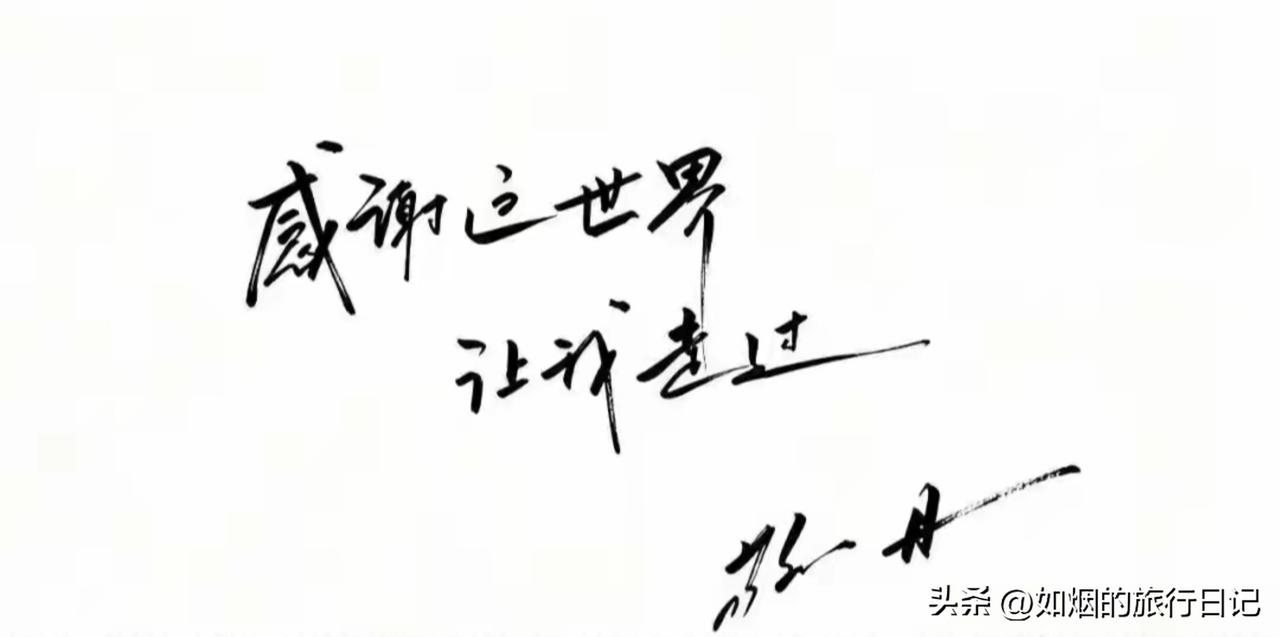 感谢这世界
让我走过
丹
头条 @如烟的旅行日记